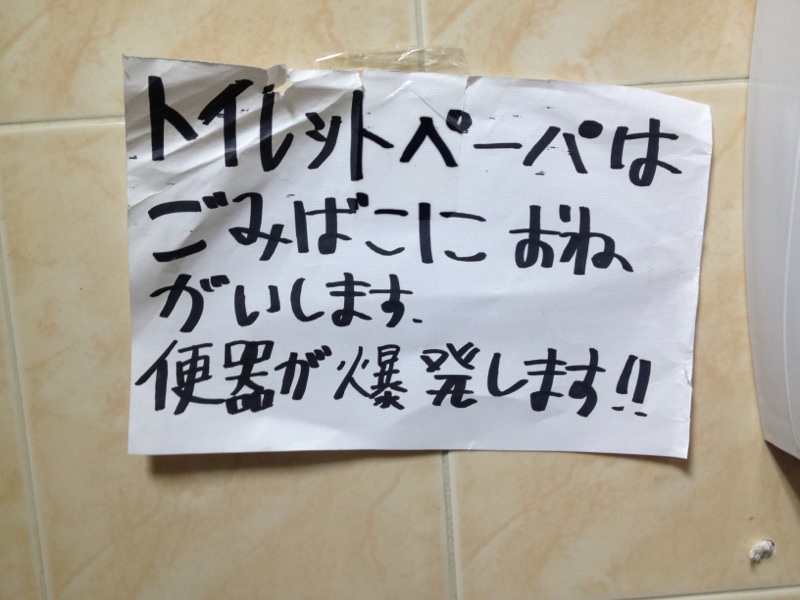 トイレットペーパは
ごみばこにおね
がいします.
便器が爆発します!!